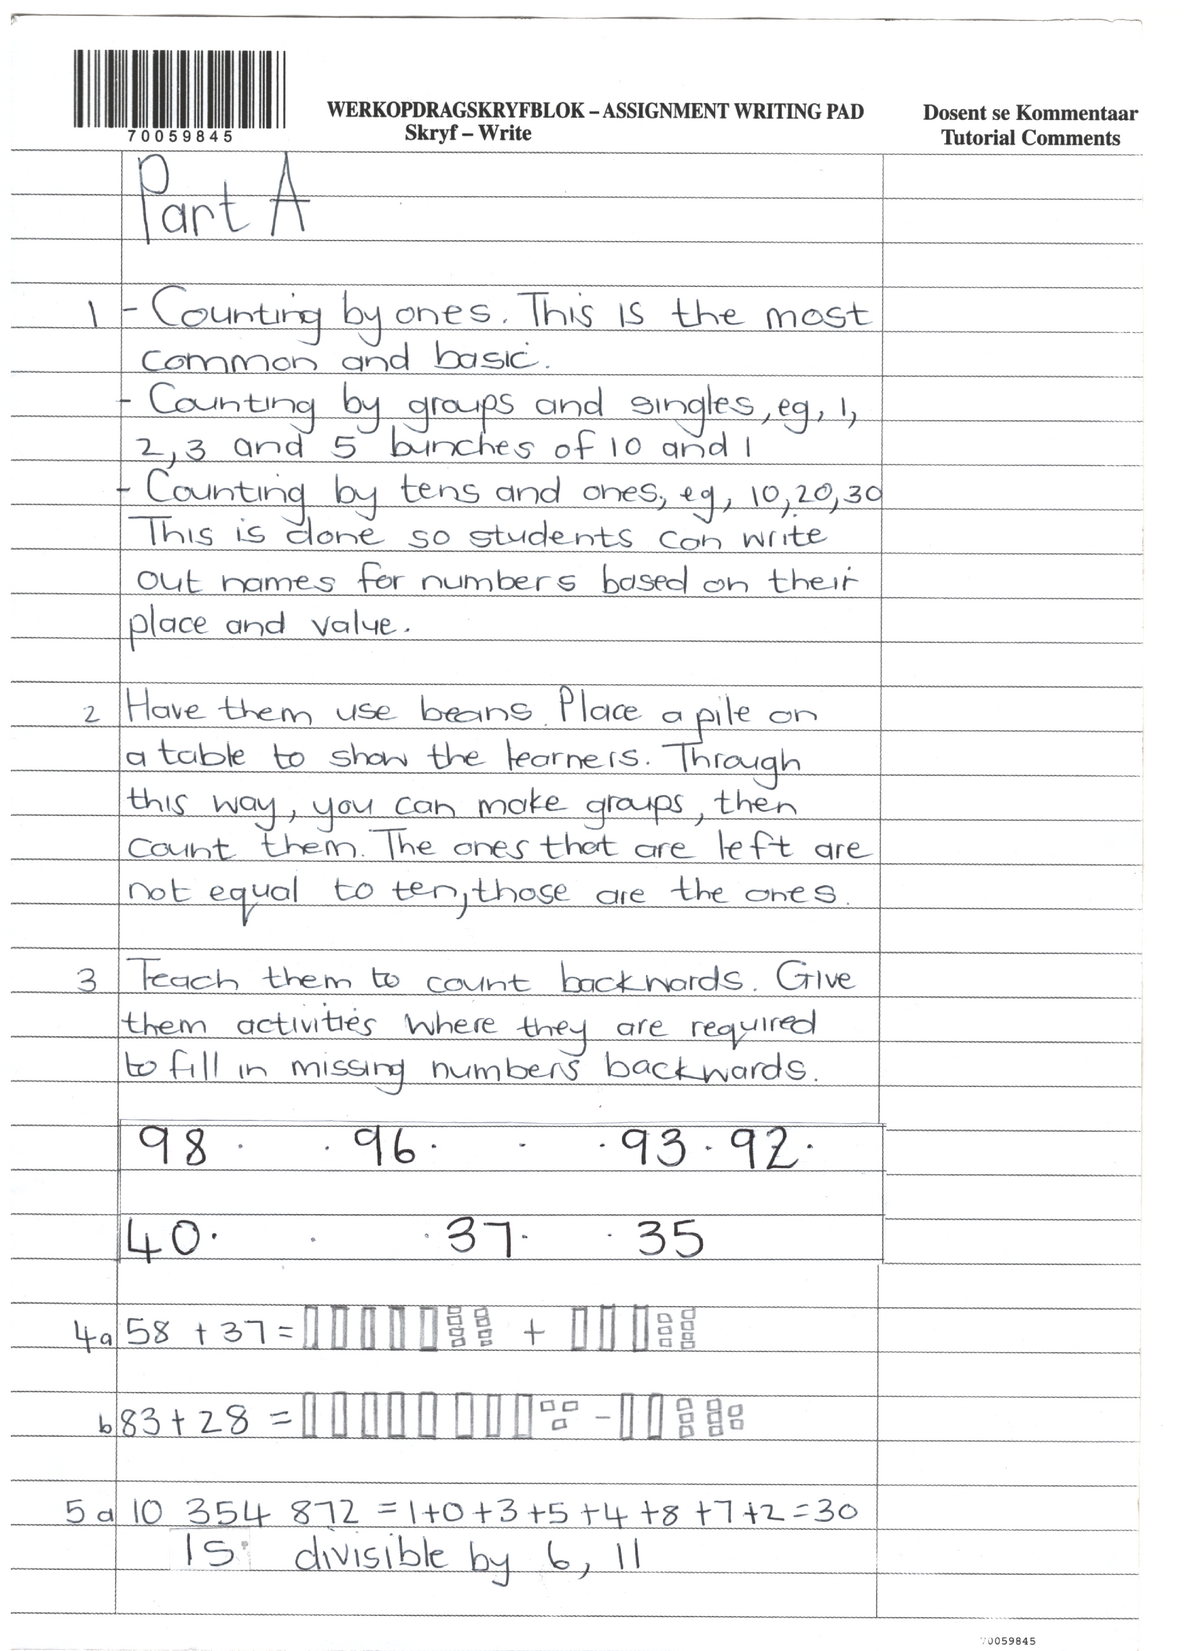 WERKOPDRAGSKRYFBLOK – ASSIGNMENT WRITING PAD
Skryf – Write
Dosent se Kommentaar
Tutorial Comments
70059845
Part A
1 - Counting by ones. This is the most
common and basic.
- Counting by groups and singles, eg, 1,
2, 3 and 5 bunches of 10 and 1
- Counting by tens and ones, eg, 10, 20, 30
This is done so students can write
out names for numbers based on their
place and value.
2 Have them use beans. Place a pile on
a table to show the learners. Through
this way, you can make groups, then
count them. The ones that are left are
not equal to ten, those are the ones.
3 Teach them to count backwards. Give
them activities where they are required
to fill in missing numbers backwards.
98 . . 96 . . . 93 . 92 .
40 . . . 37 . . 35
4a 58 + 37 = +
b 83 + 28 = -
5a 10 354 872 = 1+0+3+5+4+8+7+2=30
IS divisible by 6, 11
70059845